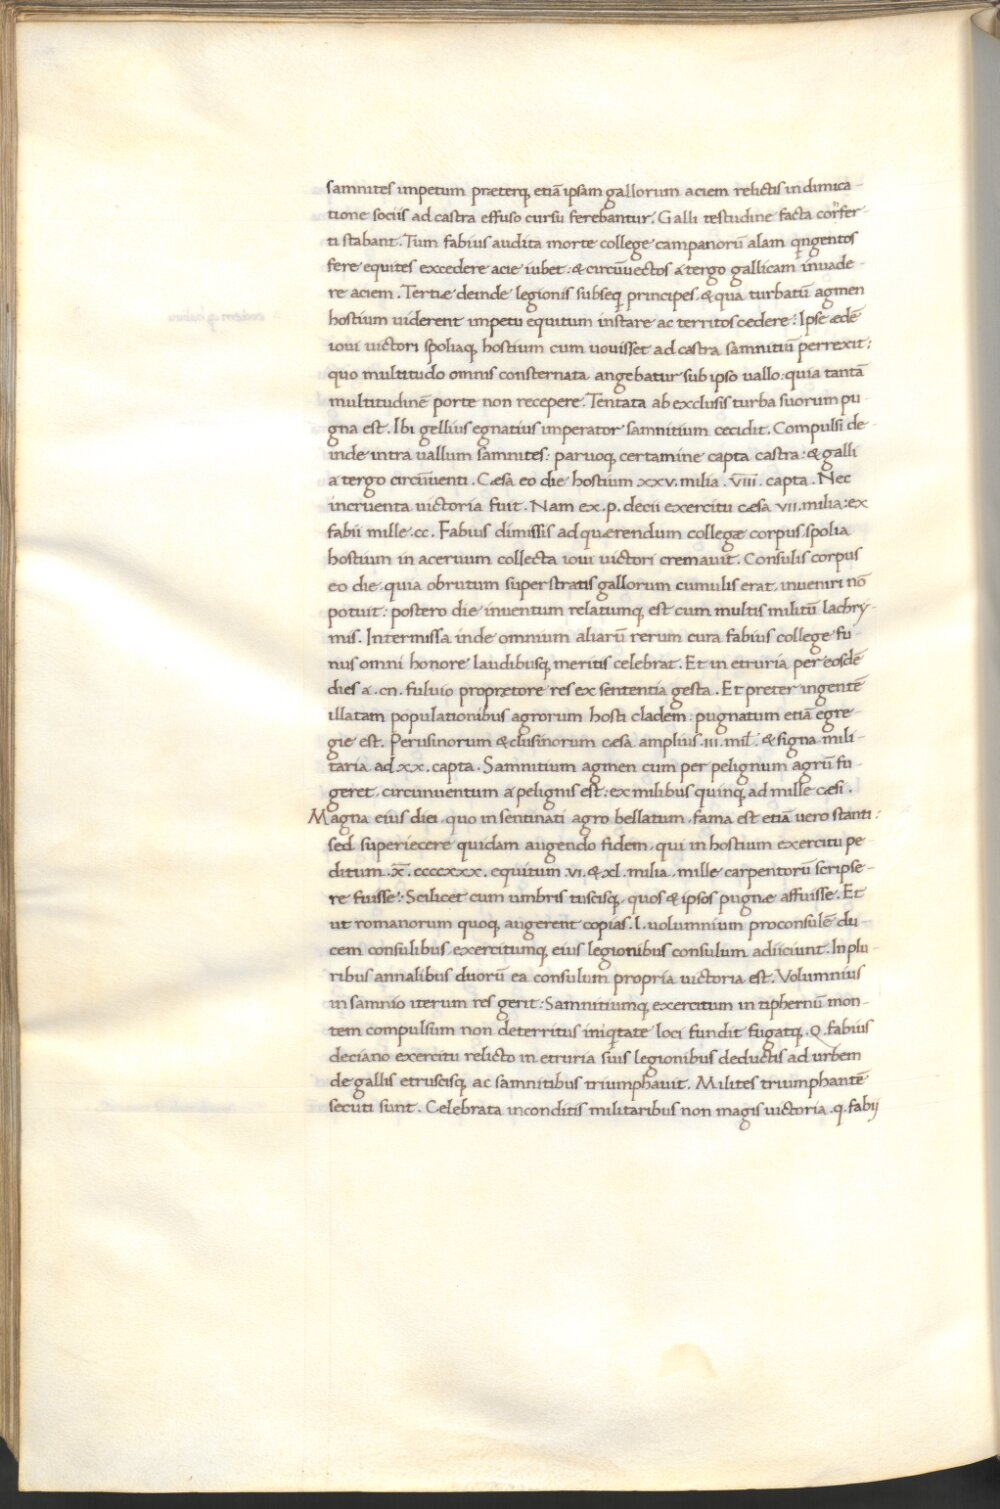 samnites impetum præterq, etiā ipsam gallorum aciem relictis in dimica-
tione sociis ad castra effuso cursu ferebantur. Galli testudine facta confer-
ti stabant. Tum fabius audita morte college campanorū alam qngentos
fere equites excedere acie iubet: & circūuectos a tergo gallicam inuade-
re aciem. Tertiæ deinde legionis subseq principes, & qua turbatū agmen
hostium uiderent impetu equitum instare ac territos cedere: Ipse ædē
ioui uictori spoliaq, hostium cum uouisset ad castra samnitiū perrexit:
quo multitudo omnis consternata angebatur sub ipso uallo: quia tantā
multitudinē porte non recepere. Tentata ab exclusis turba suorum pu-
gna est. Ibi gellius egnatius imperator samnitium cecidit. Compulsi de-
inde intra uallum samnites: paruoq, certamine capta castra: & galli
a tergo circūuenti. Cæsa eo die hostium xxv. milia. VIII. capta. Nec
incruenta uictoria fuit. Nam ex .p. decii exercitu cæsa VII. milia: ex
fabii mille .cc. Fabius dimissis ad quærendum collegæ corpus spolia
hostium in aceruum collecta ioui uictori cremauit. Consulis corpus
eo die quia obrutum superstratis gallorum cumulis erat inueniri nō
potuit: postero die inuentum relatumq, est cum multis militū lachry-
mis. Intermissa inde omnium aliarū rerum cura fabius college fu-
nus omni honore laudibusq, meritis celebrat. Et in etruria per eosdē
dies a .cn. fuluio proprætore res ex sententia gesta. Et preter ingentē
illatam populationibus agrorum hosti cladem: pugnatum etiā egre-
gie est. Perusinorum & clusinorum cæsa amplius .III. mil. & signa mili-
taria ad xx. capta. Samnitium agmen cum per pelignum agrū fu-
geret, circumuentum a pelignis est: ex milibus quinq, ad mille cæsi.
Magna eius diei, quo in sentinati agro bellatum, fama est etiā uero stanti:
sed superiecere quidam augendo fidem, qui in hostium exercitu pe-
ditum .X̅. ccccxxx. equitum .VI. & xl. milia, mille carpentorū scripse-
re fuisse: Scilicet cum umbris tuscisq, quos & ipsos pugnæ affuisse. Et
ut romanorum quoq, augerent copias. l. uolumnium proconsulē du-
cem consulibus, exercitumq, eius legionibus consulum adiiciunt. In plu-
ribus annalibus duorū ea consulum propria uictoria est. Volumnius
in samnio iterum res gerit: Samnitiumq, exercitum in tiphernū mon-
tem compulsum non deterritus iniqtate loci fundit fugatq,. Q. fabius
deciano exercitu relicto in etruria suis legionibus deductis ad urbem
de gallis etruscisq, ac samnitibus triumphauit. Milites triumphantē
secuti sunt. Celebrata inconditis militaribus non magis uictoria .q. fabij